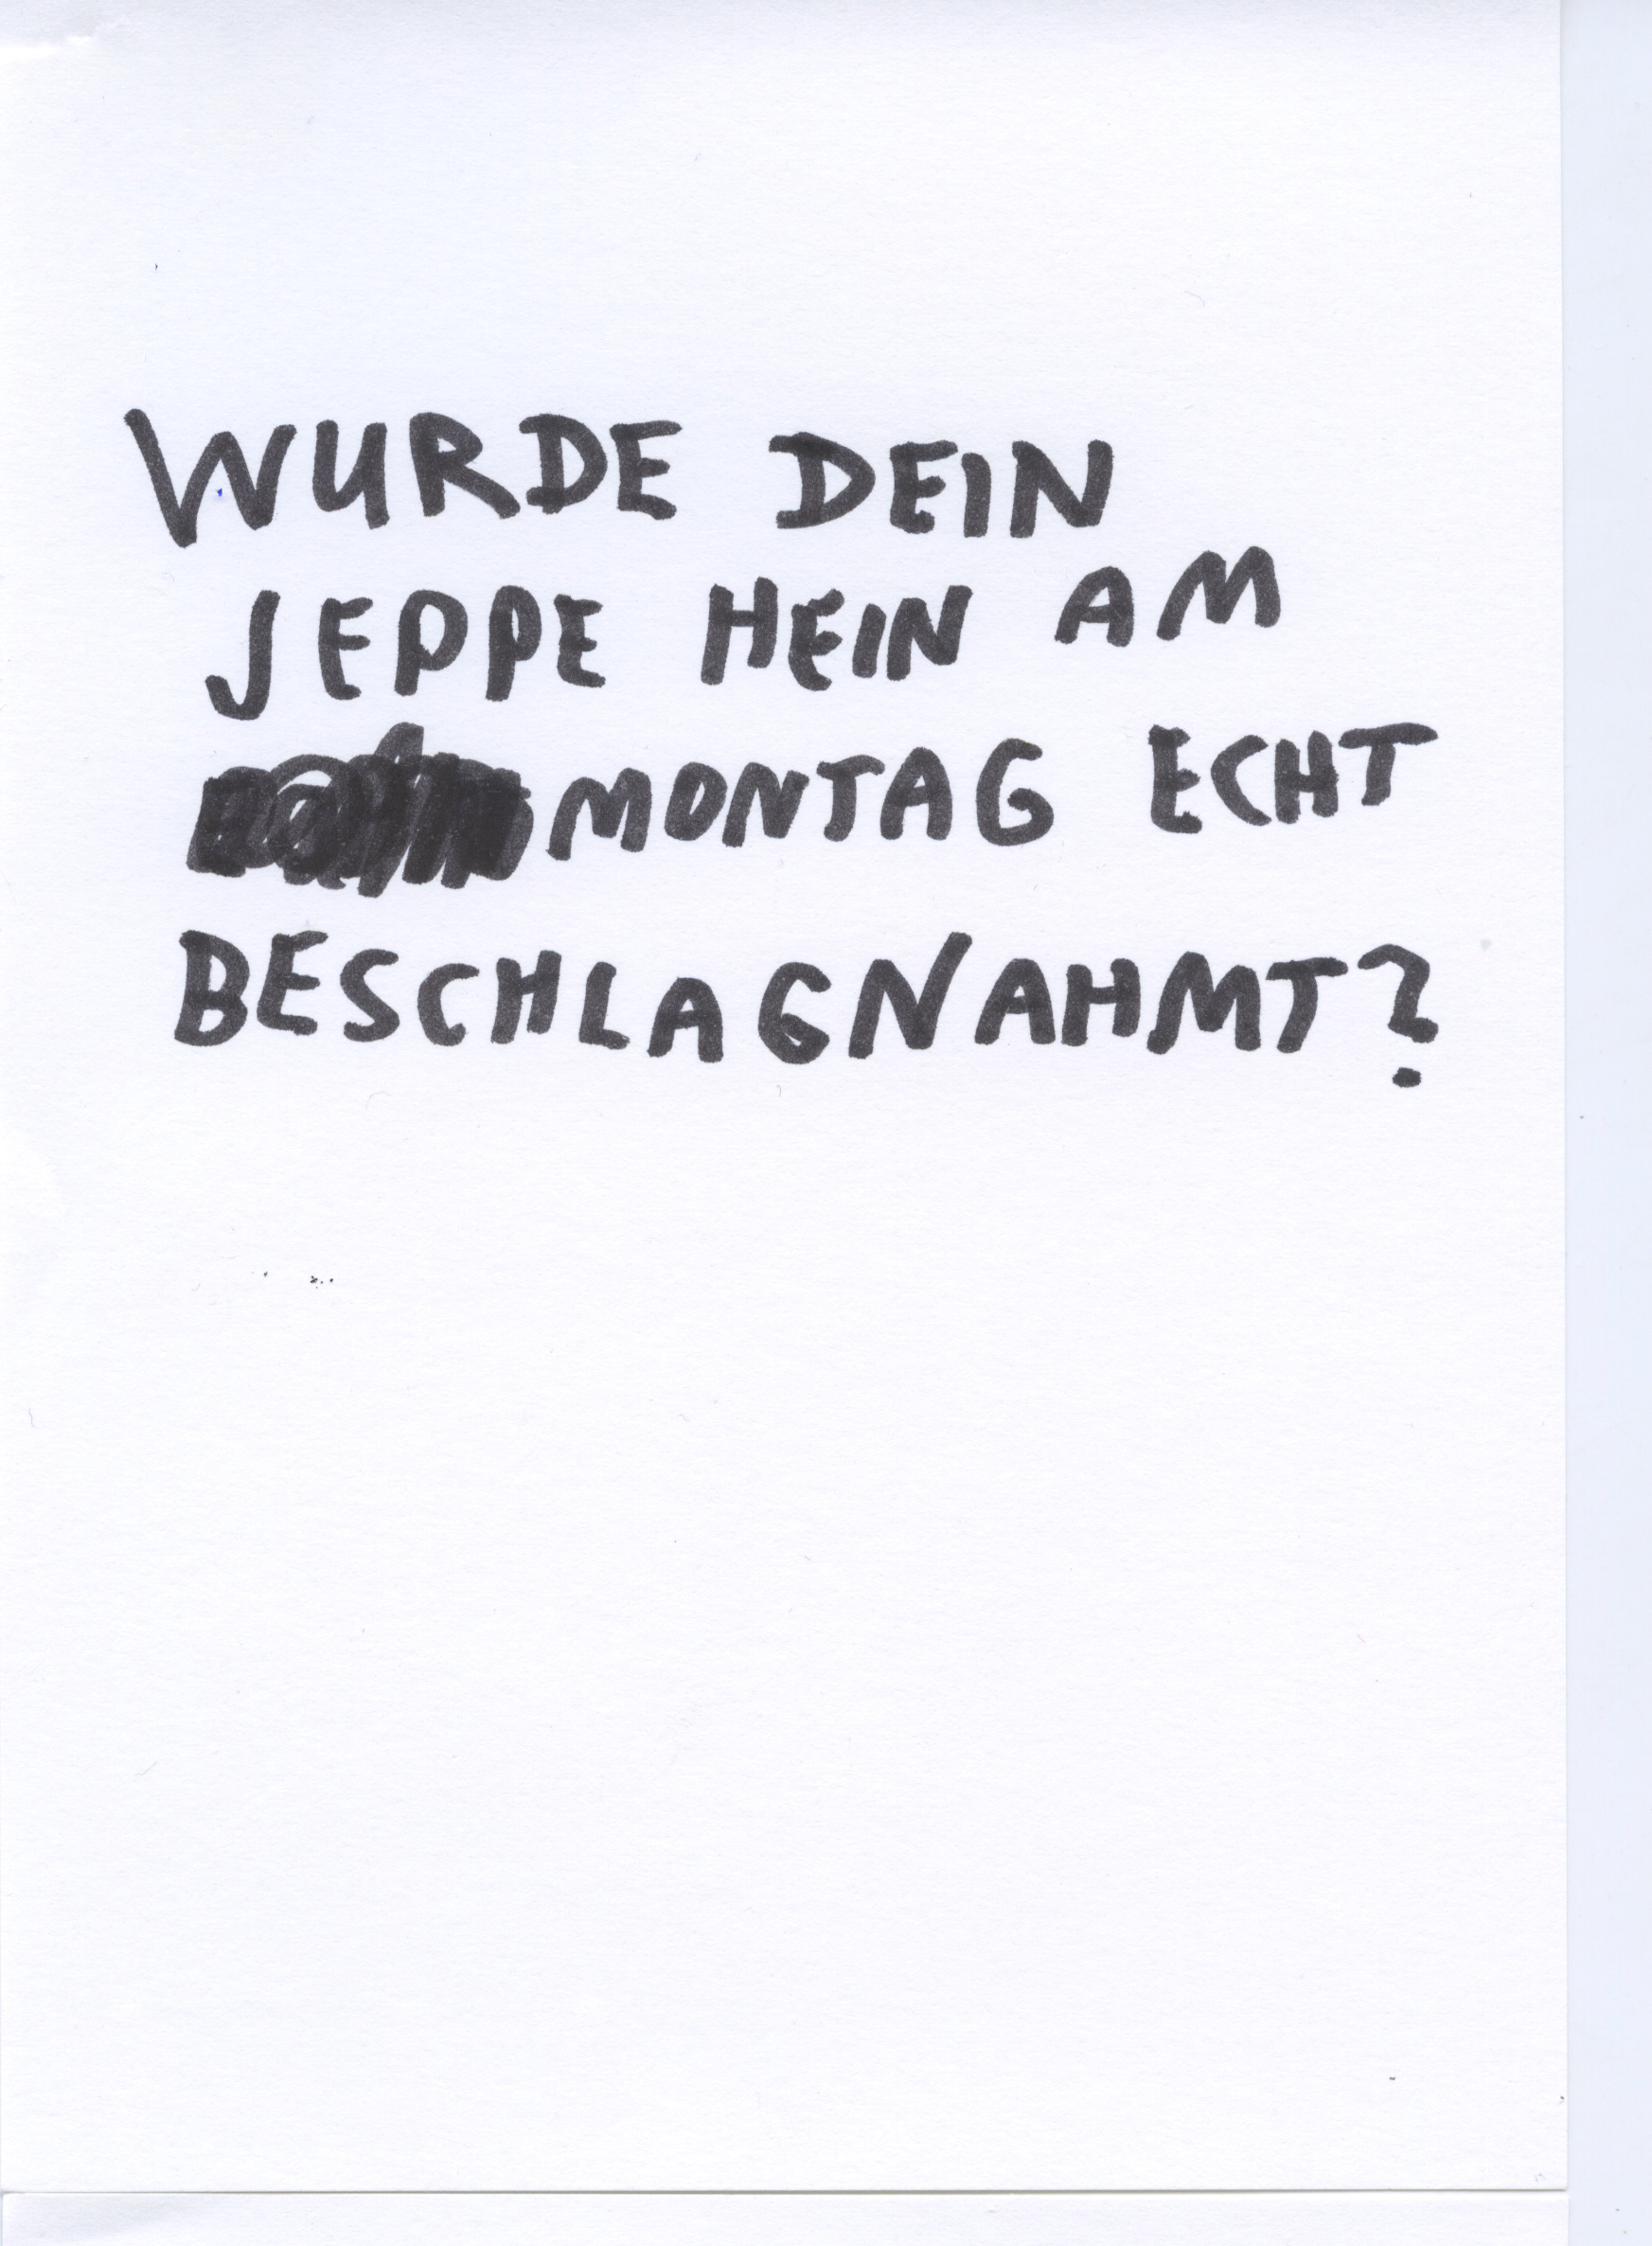 WURDE DEIN
JEPPE HEIN AM
MONTAG ECHT
BESCHLAGNAHMT?